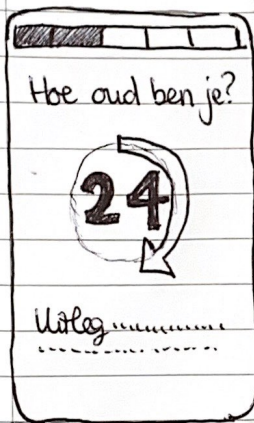 Hoe oud ben je?
24
Uitleg